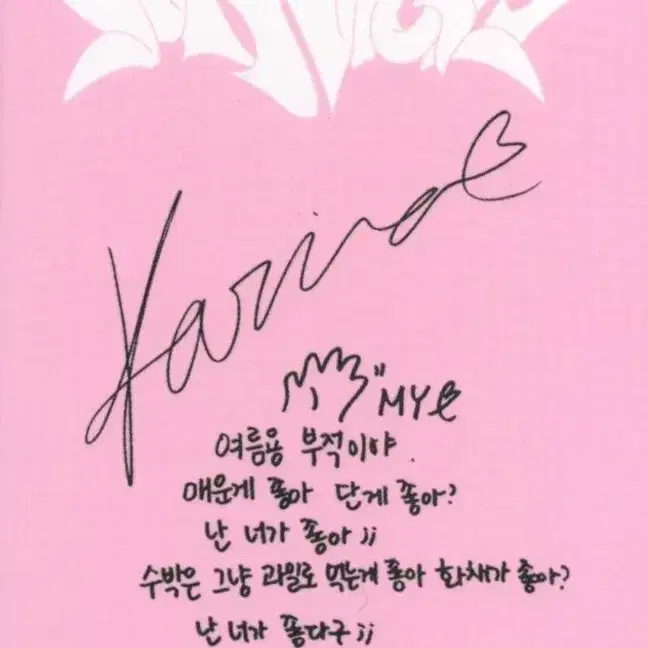 Karina
"MY
여름용 부적이야.
매운게 좋아 단게 좋아?
난 너가 좋아 ;;
수박은 그냥 과일로 먹는게 좋아 화채가 좋아?
난 너가 좋다구 ;;